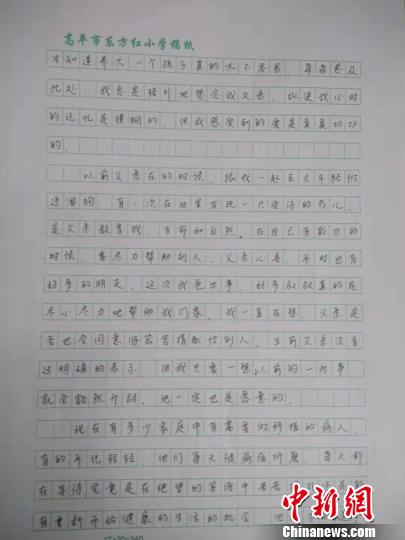 高平市东方红小学稿纸
才知道养大一个孩子真的太不容易，每每思及
此处，我总是格外地想念我父亲，纵使我小时
的记忆是模糊的，但我感受到的爱是真真切切
的。
以前父亲在的时候，跟我一起去火车路附
近遛狗，有一次在田里发现一只受伤的鸟儿，
是父亲教育我，生命和自然。在自己有能力的
时候，要尽力帮助别人。父亲心善，平时也有
好多的朋友，这次我爸出事，好多叔叔真的是
尽心尽力地帮助我们家。我一直在想，父亲是
否也会同意将器官捐献给别人，生前父亲没有
过明确的表示，但我只要一想以前的一些事，
就会豁然开朗，他一定也是愿意的。
现在有多少家庭中有需要做移植的病人，
有的年纪轻轻，他们每天被病痛折磨，每天都
在等待究竟是在绝望的等待中苦苦
有重新开始健康的生活的机会，他
中新网